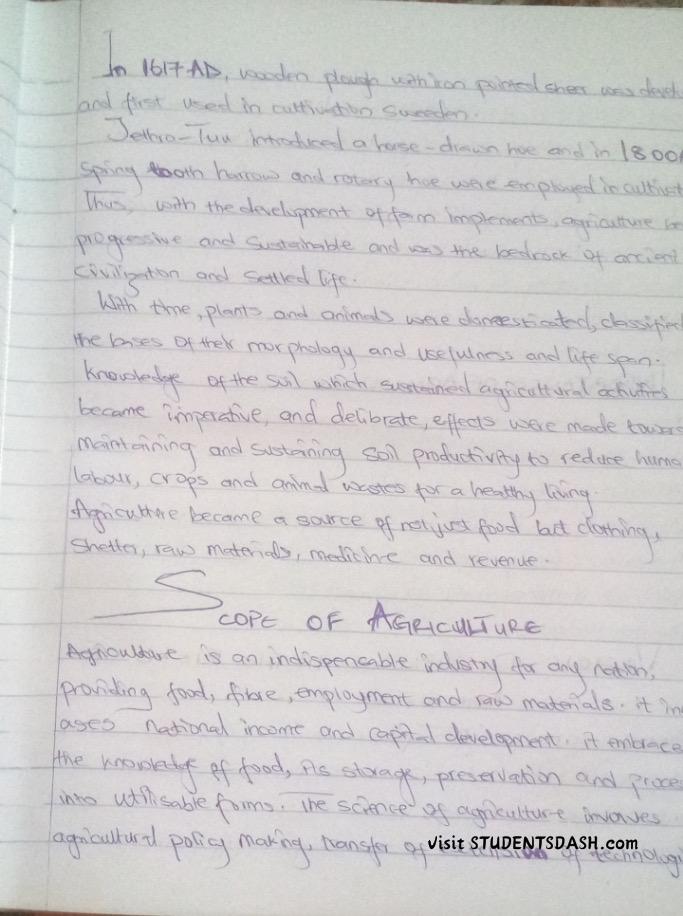 In 1617 AD, wooden plough with iron pointed shear was devel
and first used in cultivation Sweeden.
Jethro-Tuu introduced a horse-drawn hoe and in 1800
Spring tooth harrow and rotary hoe were employed in cultivat
Thus, with the development of farm implements, agriculture be
progressive and sustainable and was the bedrock of ancient
Civilization and settled life.
With time, plants and animals were domesticated, classified
the bases of their morphology and usefulness and life span.
Knowledge of the soil which sustained agricultural activities
became imperative, and delibrate, effects were made towar
maintaining and sustaining soil productivity to reduce huma
labour, crops and animal wastes for a healthy living.
Agriculture became a source of not just food but clothing,
Shelter, raw materials, medicine and revenue.
SCOPE OF AGRICULTURE
Agriculture is an indispencable industry for any nation,
providing food, fibre, employment and raw materials. it in
ases national income and capital development. it embrace
the knowledge of food, its storage, preservation and proce
into utilisable forms. The science of agriculture invoves
agricultural policy making, transfer of of technologi
visit STUDENTSDASH.com